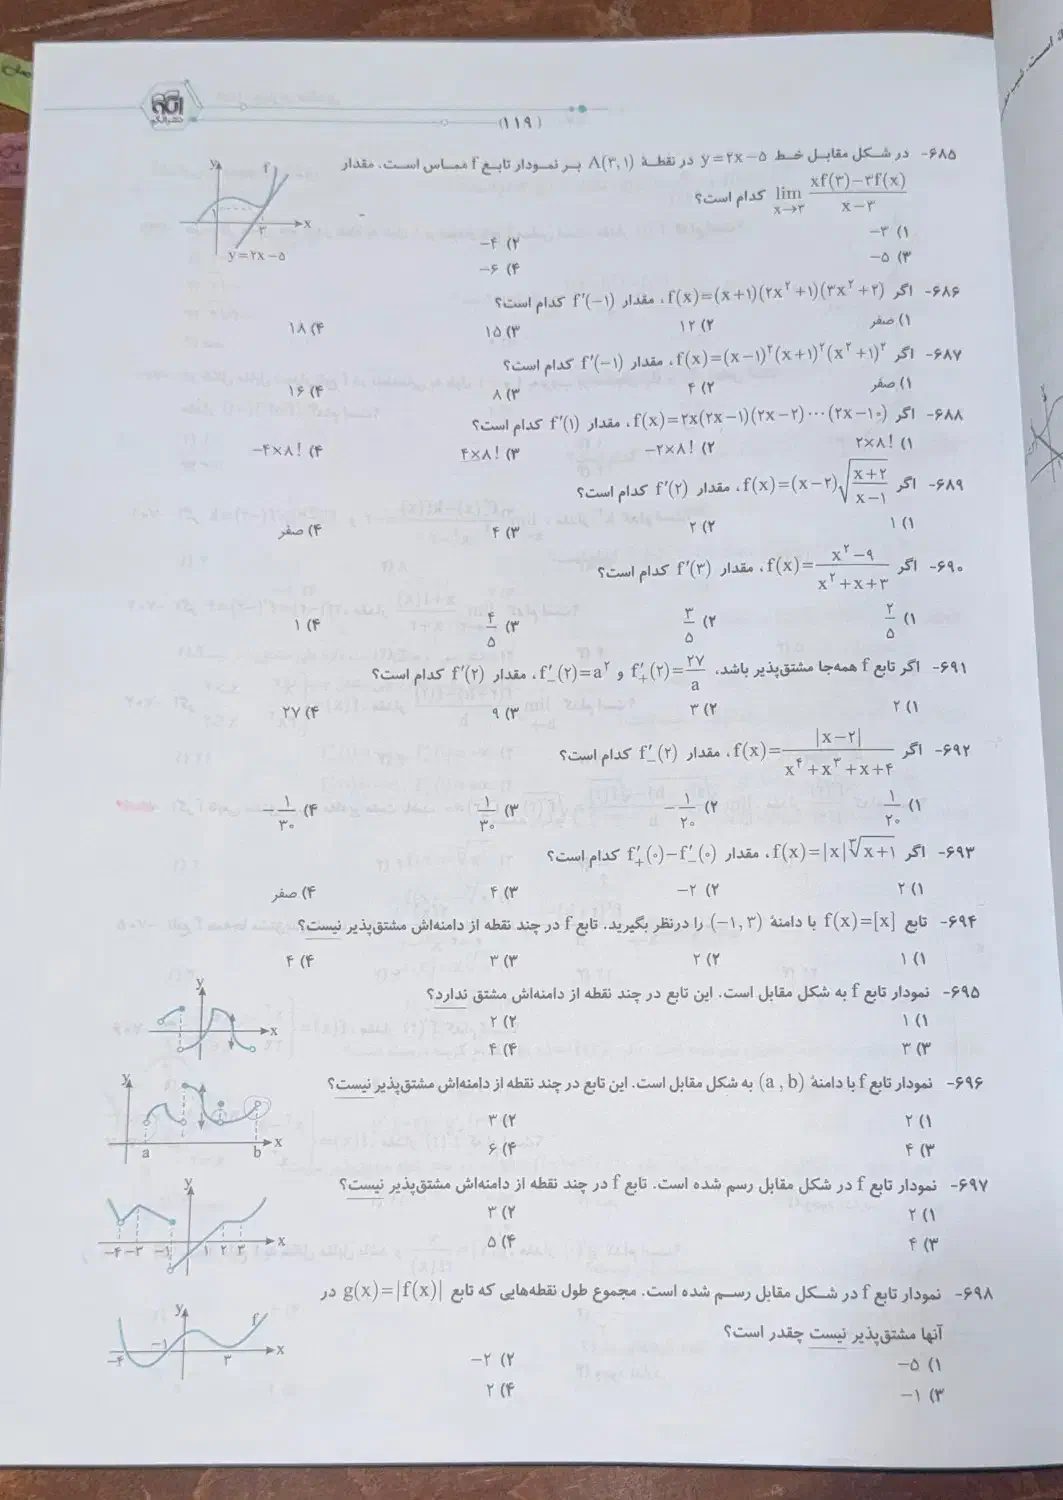 (۱۱۹)
نشرالگو
۶۸۵- در شکل مقابل خط y=۲x-۵ در نقطهٔ A(۳,۱) بر نمودار تابع f مماس است. مقدار
lim x→۳ (xf(۳)-۳f(x))/(x-۳) کدام است؟
y f ۱ ۳ x y=۲x-۵
۱) -۳ ۲) -۴
۳) -۵ ۴) -۶
۶۸۶- اگر f(x)=(x+۱)(۲x^۲+۱)(۳x^۲+۲)، مقدار f′(-۱) کدام است؟
۱) صفر ۲) ۱۲ ۳) ۱۵ ۴) ۱۸
۶۸۷- اگر f(x)=(x-۱)^۲(x+۱)^۲(x^۲+۱)^۲، مقدار f′(-۱) کدام است؟
۱) صفر ۲) ۴ ۳) ۸ ۴) ۱۶
۶۸۸- اگر f(x)=۲x(۲x-۱)(۲x-۲)⋯(۲x-۱۰)، مقدار f′(۱) کدام است؟
۱) ۲×۸! ۲) -۲×۸! ۳) ۴×۸! ۴) -۴×۸!
۶۸۹- اگر f(x)=(x-۲)√((x+۲)/(x-۱))، مقدار f′(۲) کدام است؟
۱) ۱ ۲) ۲ ۳) ۴ ۴) صفر
۶۹۰- اگر f(x)=(x^۲-۹)/(x^۲+x+۳)، مقدار f′(۳) کدام است؟
۱) ۲/۵ ۲) ۳/۵ ۳) ۴/۵ ۴) ۱
۶۹۱- اگر تابع f همه‌جا مشتق‌پذیر باشد، f′₊(۲)=۲۷/a و f′₋(۲)=a^۲، مقدار f′(۲) کدام است؟
۱) ۲ ۲) ۳ ۳) ۹ ۴) ۲۷
۶۹۲- اگر f(x)=|x-۲|/(x^۴+x^۳+x+۴)، مقدار f′₋(۲) کدام است؟
۱) ۱/۲۰ ۲) -۱/۲۰ ۳) ۱/۳۰ ۴) -۱/۳۰
۶۹۳- اگر f(x)=|x|∛(x+۱)، مقدار f′₊(۰)-f′₋(۰) کدام است؟
۱) ۲ ۲) -۲ ۳) ۴ ۴) صفر
۶۹۴- تابع f(x)=[x] با دامنهٔ (-۱,۳) را درنظر بگیرید. تابع f در چند نقطه از دامنه‌اش مشتق‌پذیر نیست؟
۱) ۱ ۲) ۲ ۳) ۳ ۴) ۴
۶۹۵- نمودار تابع f به شکل مقابل است. این تابع در چند نقطه از دامنه‌اش مشتق ندارد؟
y x
۱) ۱ ۲) ۲
۳) ۳ ۴) ۴
۶۹۶- نمودار تابع f با دامنهٔ (a,b) به شکل مقابل است. این تابع در چند نقطه از دامنه‌اش مشتق‌پذیر نیست؟
y a b x
۱) ۲ ۲) ۳
۳) ۴ ۴) ۶
۶۹۷- نمودار تابع f در شکل مقابل رسم شده است. تابع f در چند نقطه از دامنه‌اش مشتق‌پذیر نیست؟
y -۴ -۳ -۱ ۱ ۲ ۳ x
۱) ۲ ۲) ۳
۳) ۴ ۴) ۵
۶۹۸- نمودار تابع f در شکل مقابل رسم شده است. مجموع طول نقطه‌هایی که تابع g(x)=|f(x)| در
آنها مشتق‌پذیر نیست چقدر است؟
y f -۴ -۱ ۳ x
۱) -۵ ۲) -۲
۳) -۱ ۴) ۲